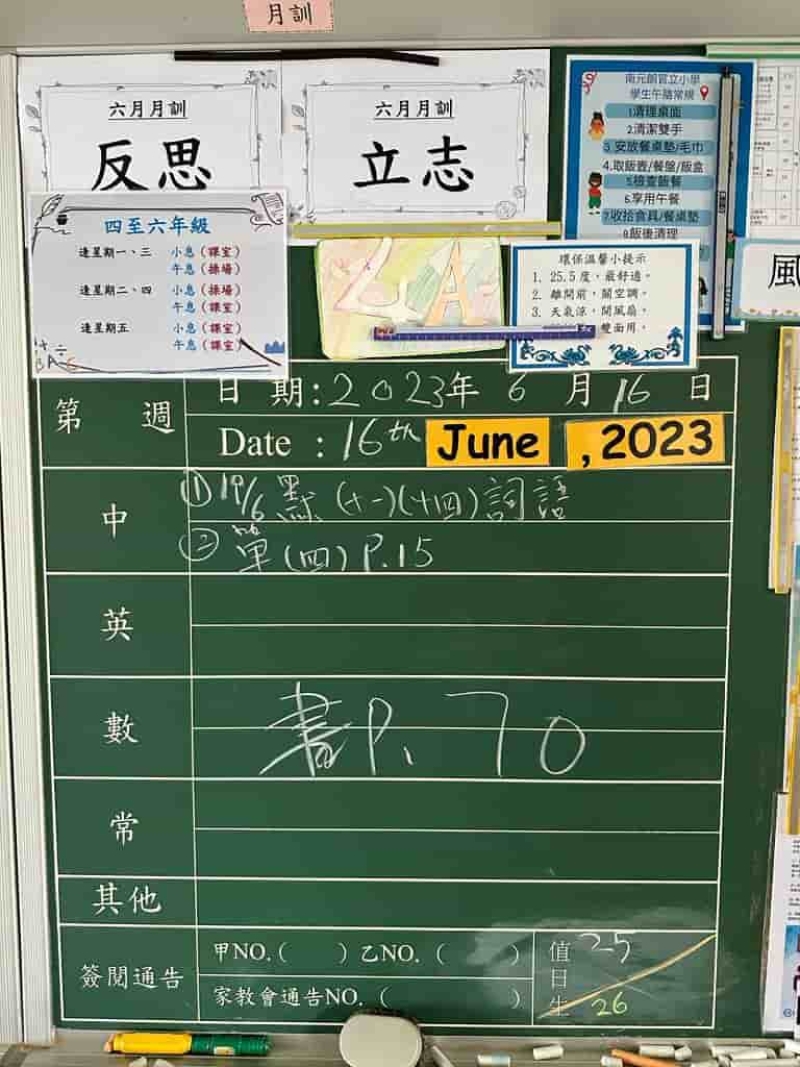 月訓
六月月訓
反思
六月月訓
立志
南元朗官立小學
學生午膳常規
1.清理桌面
2.清潔雙手
3.安放餐桌墊/毛巾
4.取飯壺/餐盤/飯盒
5.檢查飯餐
6.享用午餐
7.收拾食具/餐桌墊
8.飯後清理
四至六年級
逢星期一、三 小息（課室）
午息（操場）
逢星期二、四 小息（操場）
午息（課室）
逢星期五 小息（課室）
午息（課室）
乙A
環保溫馨小提示
1. 25.5度，最舒適。
2. 離開前，關空調。
3. 天氣涼，開風扇。
雙面用。
風
第 週
日 期:2023年 6 月 16 日
Date : 16th June ,2023
中
① 19/6 默(十一)(十四)詞語
② 單(四) P.15
英
數
書P. 70
常
其他
簽閱通告
甲NO.( ) 乙NO. ( )
家教會通告NO. ( )
值日生
25
26